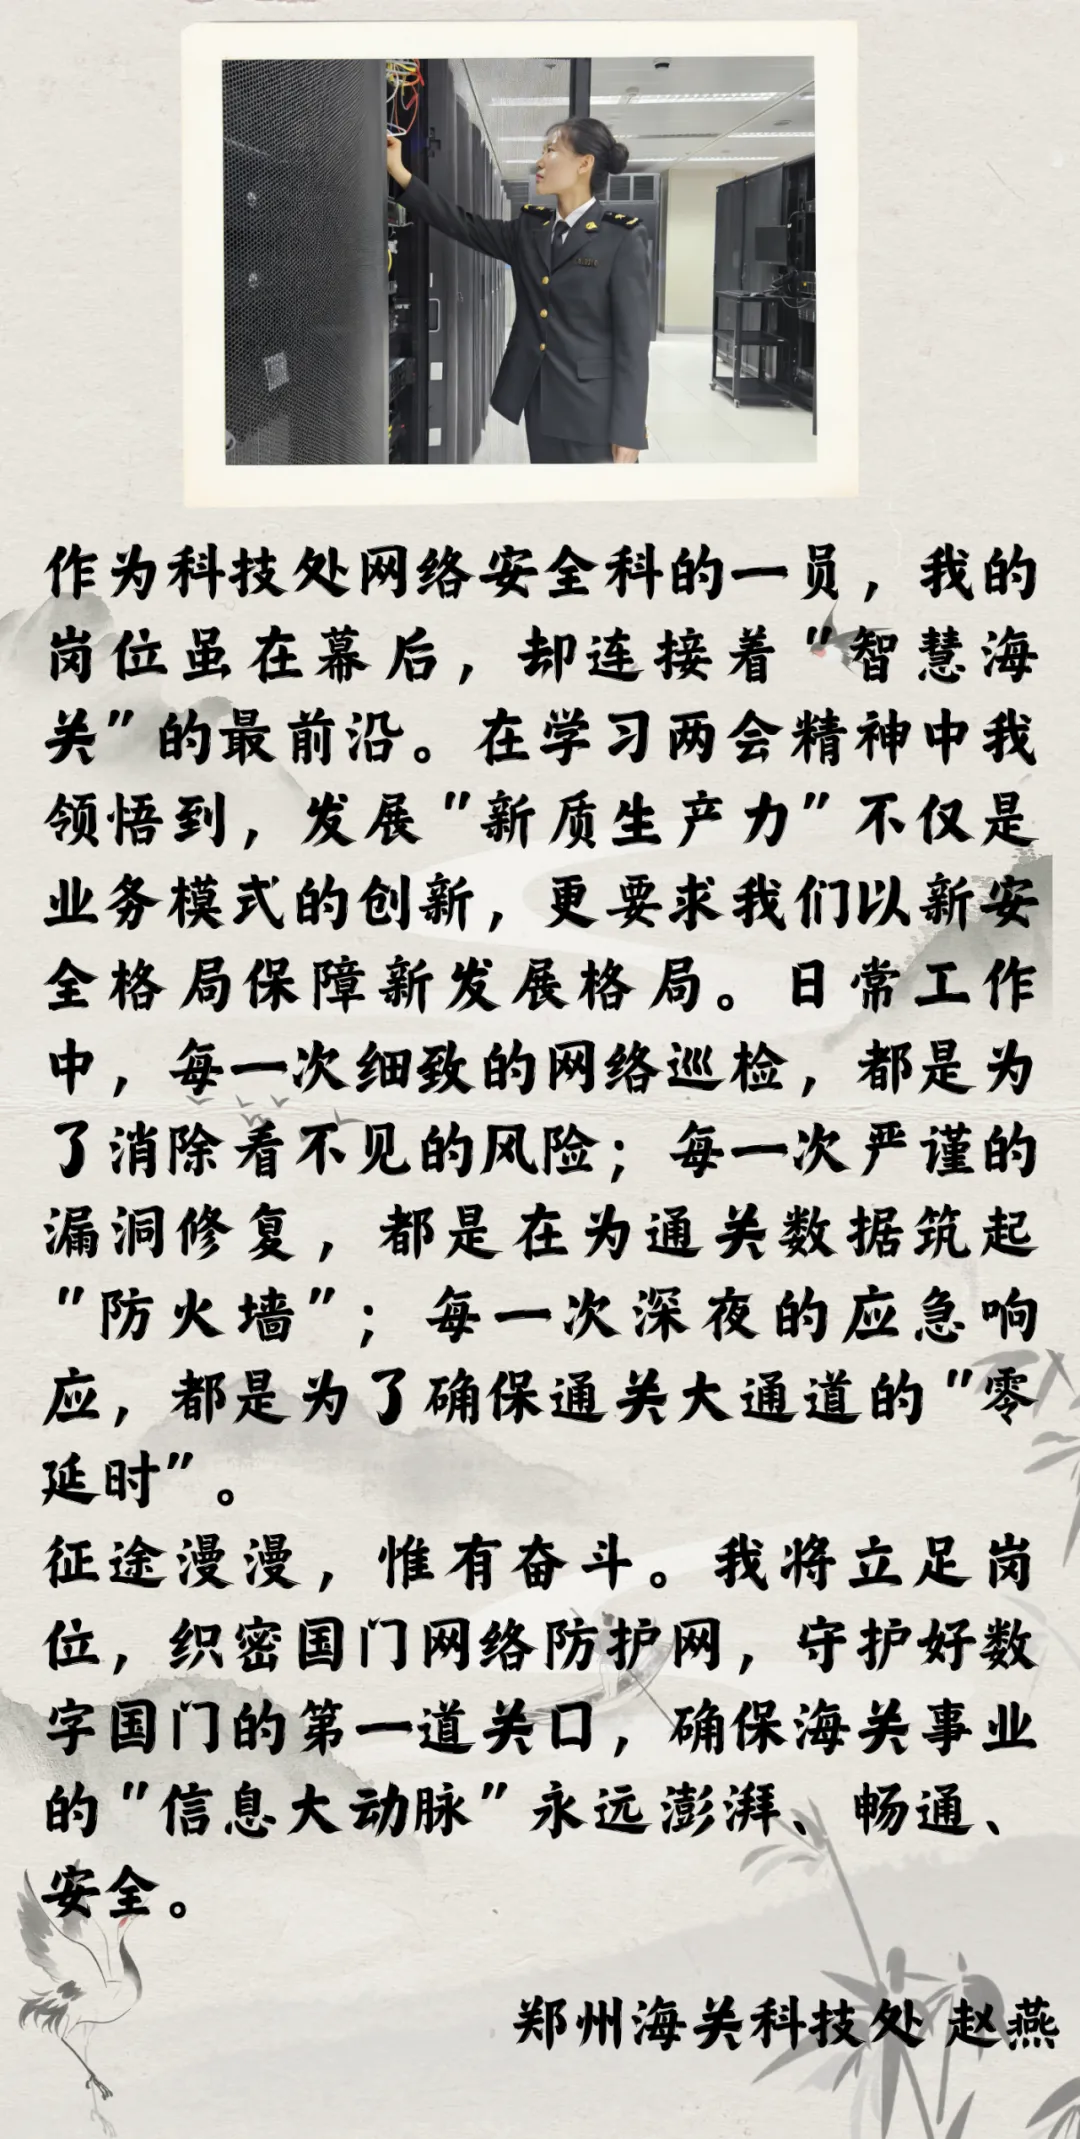 作为科技处网络安全科的一员，我的
岗位虽在幕后，却连接着"智慧海
关"的最前沿。在学习两会精神中我
领悟到，发展"新质生产力"不仅是
业务模式的创新，更要求我们以新安
全格局保障新发展格局。日常工作
中，每一次细致的网络巡检，都是为
了消除看不见的风险；每一次严谨的
漏洞修复，都是在为通关数据筑起
"防火墙"；每一次深夜的应急响
应，都是为了确保通关大通道的"零
延时"。
征途漫漫，惟有奋斗。我将立足岗
位，织密国门网络防护网，守护好数
字国门的第一道关口，确保海关事业
的"信息大动脉"永远澎湃、畅通、
安全。
郑州海关科技处 赵燕